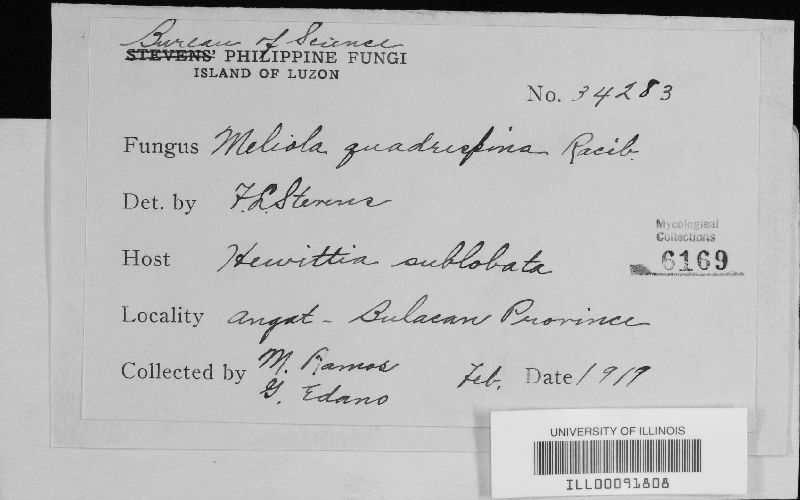 Bureau of Science
STEVENS' PHILIPPINE FUNGI
ISLAND OF LUZON
No. 34283
Fungus Meliola quadrispina Racib.
Det. by F.L. Stevens
Host Hewittia sublobata
Mycological
Collections
6169
Locality Angat - Bulacan Province
Collected by M. Ramos
G. Edano
Feb. Date 1919
UNIVERSITY OF ILLINOIS
ILL00091808